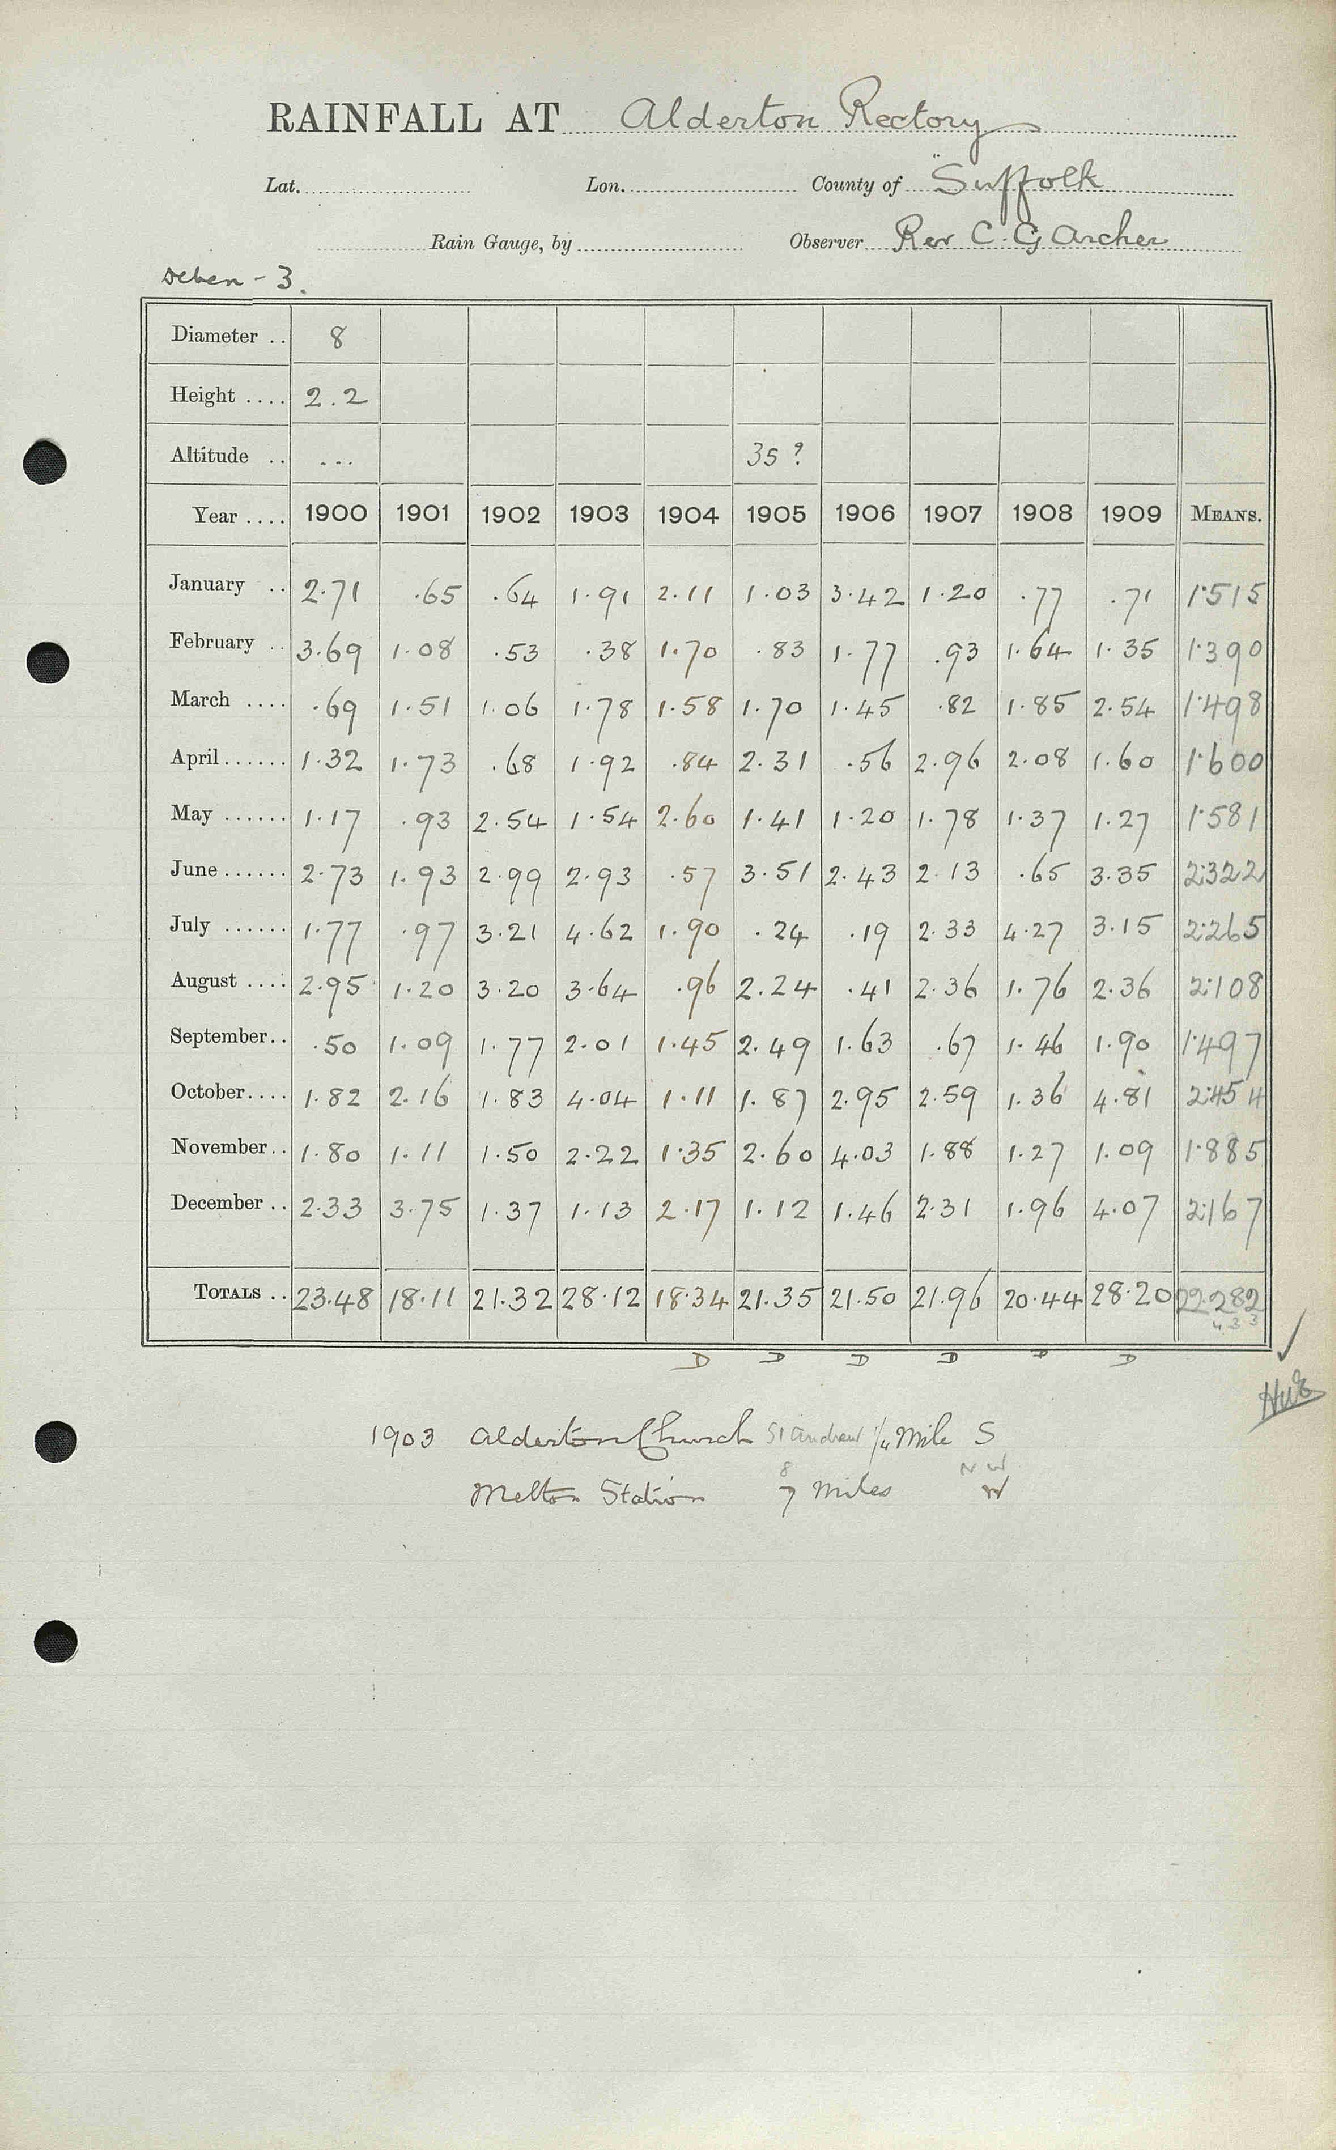 RAINFALL AT Alderton Rectory
Lat. Lon. County of Suffolk
Rain Gauge, by Observer Rev C. G Archer
Deben - 3.
Diameter .. 8
Height .... 2.2
Altitude .. ... 35 ?
Year .... 1900 1901 1902 1903 1904 1905 1906 1907 1908 1909 MEANS.
January .. 2.71 .65 .64 1.91 2.11 1.03 3.42 1.20 .77 .71 1.515
February .. 3.69 1.08 .53 .38 1.70 .83 1.77 .93 1.64 1.35 1.390
March .... .69 1.51 1.06 1.78 1.58 1.70 1.45 .82 1.85 2.54 1.498
April...... 1.32 1.73 .68 1.92 .84 2.31 .56 2.96 2.08 1.60 1.600
May ...... 1.17 .93 2.54 1.54 2.60 1.41 1.20 1.78 1.37 1.27 1.581
June...... 2.73 1.93 2.99 2.93 .57 3.51 2.43 2.13 .65 3.35 2.322
July ...... 1.77 .97 3.21 4.62 1.90 .24 .19 2.33 4.27 3.15 2.265
August .... 2.95 1.20 3.20 3.64 .96 2.24 .41 2.36 1.76 2.36 2.108
September.. .50 1.09 1.77 2.01 1.45 2.49 1.63 .67 1.46 1.90 1.497
October.... 1.82 2.16 1.83 4.04 1.11 1.87 2.95 2.59 1.36 4.81 2.454
November.. 1.80 1.11 1.50 2.22 1.35 2.60 4.03 1.88 1.27 1.09 1.885
December .. 2.33 3.75 1.37 1.13 2.17 1.12 1.46 2.31 1.96 4.07 2.167
TOTALS .. 23.48 18.11 21.32 28.12 18.34 21.35 21.50 21.96 20.44 28.20 22.282
4 3 3
D D D D D D
1903 Alderton Church St Andrew 1/4 Mile S
8 NW
Melton Station 7 Miles W